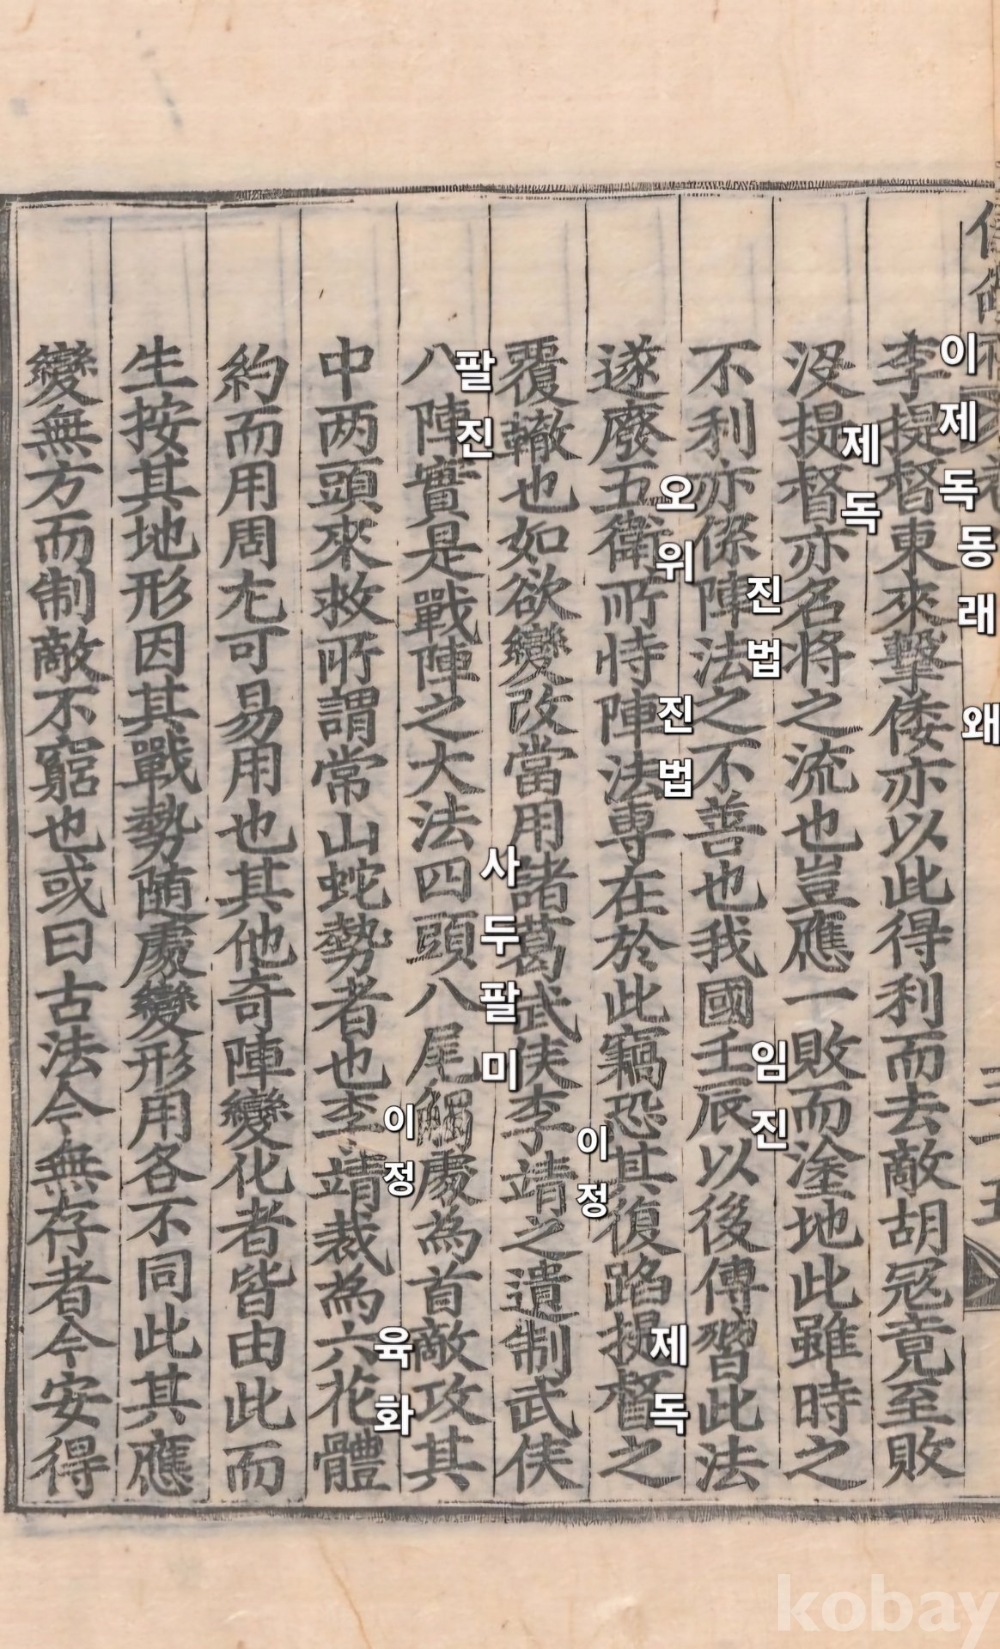 李提督東來擊倭亦以此得利而去敵胡冦竟至敗
沒提督亦名將之流也豈應一敗而塗地此雖時之
不利亦係陣法之不善也我國壬辰以後傳習此法
遂廢五衛所恃陣法專在於此竊恐其復蹈提督之
覆轍也如欲變改當用諸葛武侯李靖之遺制武侯
八陣實是戰陣之大法四頭八尾觸處為首敵攻其
中两頭來救所謂常山蛇勢者也李靖裁為六花體
約而用周尤可易用也其他奇陣變化者皆由此而
生按其地形因其戰勢随處變形用各不同此其應
變無方而制敵不窮也或曰古法今無存者今安得
이제독동래 왜
제독
진법 임진
오위 진법 제독
이정
팔진 사두팔미
이정 육화
kobay